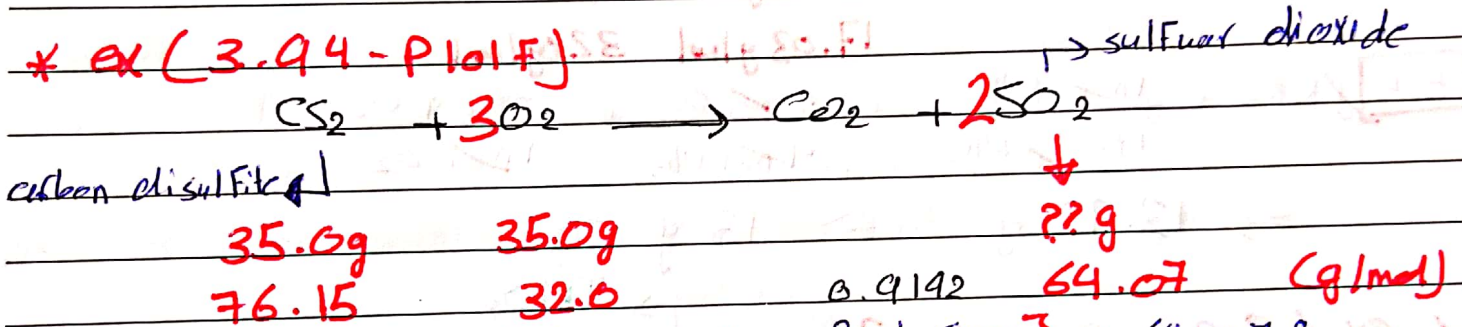 * ex (3.94 - P101F)
→ sulfuar dioxide
CS2 + 3O2 → CO2 + 2SO2
carbon disulfite
35.0g 35.0g ??g
76.15 32.0 0.9192 64.07 (g/mol)